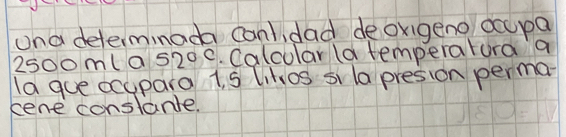 una determinada cantidad de oxigeno ocupa
2500 ml a 52°c. Calcular la temperatura a
la que ocupara 1,5 litros si la presion perma-
cene constante.